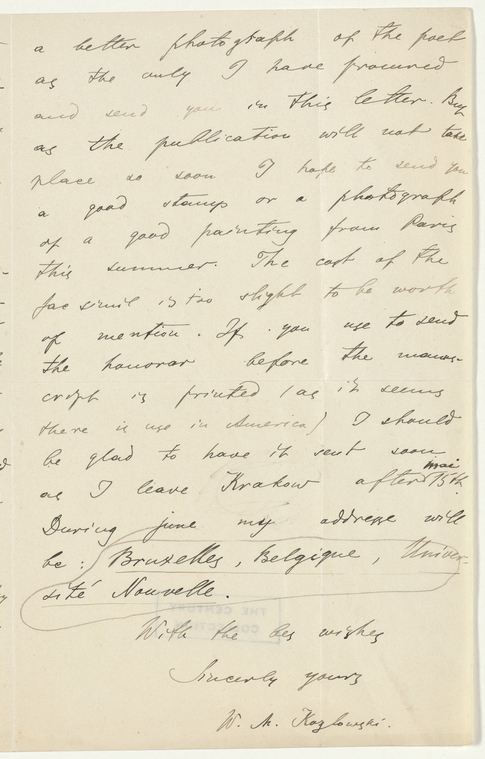 a better photograph of the poet
as the only I have procured
and send you in this letter. But
as the publication will not take
place so soon I hope to send you
a good stamp or a photograph
of a good painting from Paris
this summer. The cost of the
facsimil is too slight to be worth
of mention. If you use to send
the honorar before the manus-
cript is printed (as it seems
there is use in America) I should
be glad to have it sent soon
as I leave Krakow after mai 15th.
During june my address will
be: Bruxelles, Belgique, Univer-
sité Nouvelle.
THE CENTURY
COLLECTION
With the bes wishes
Sincerly yours
W. M. Kozlowski.